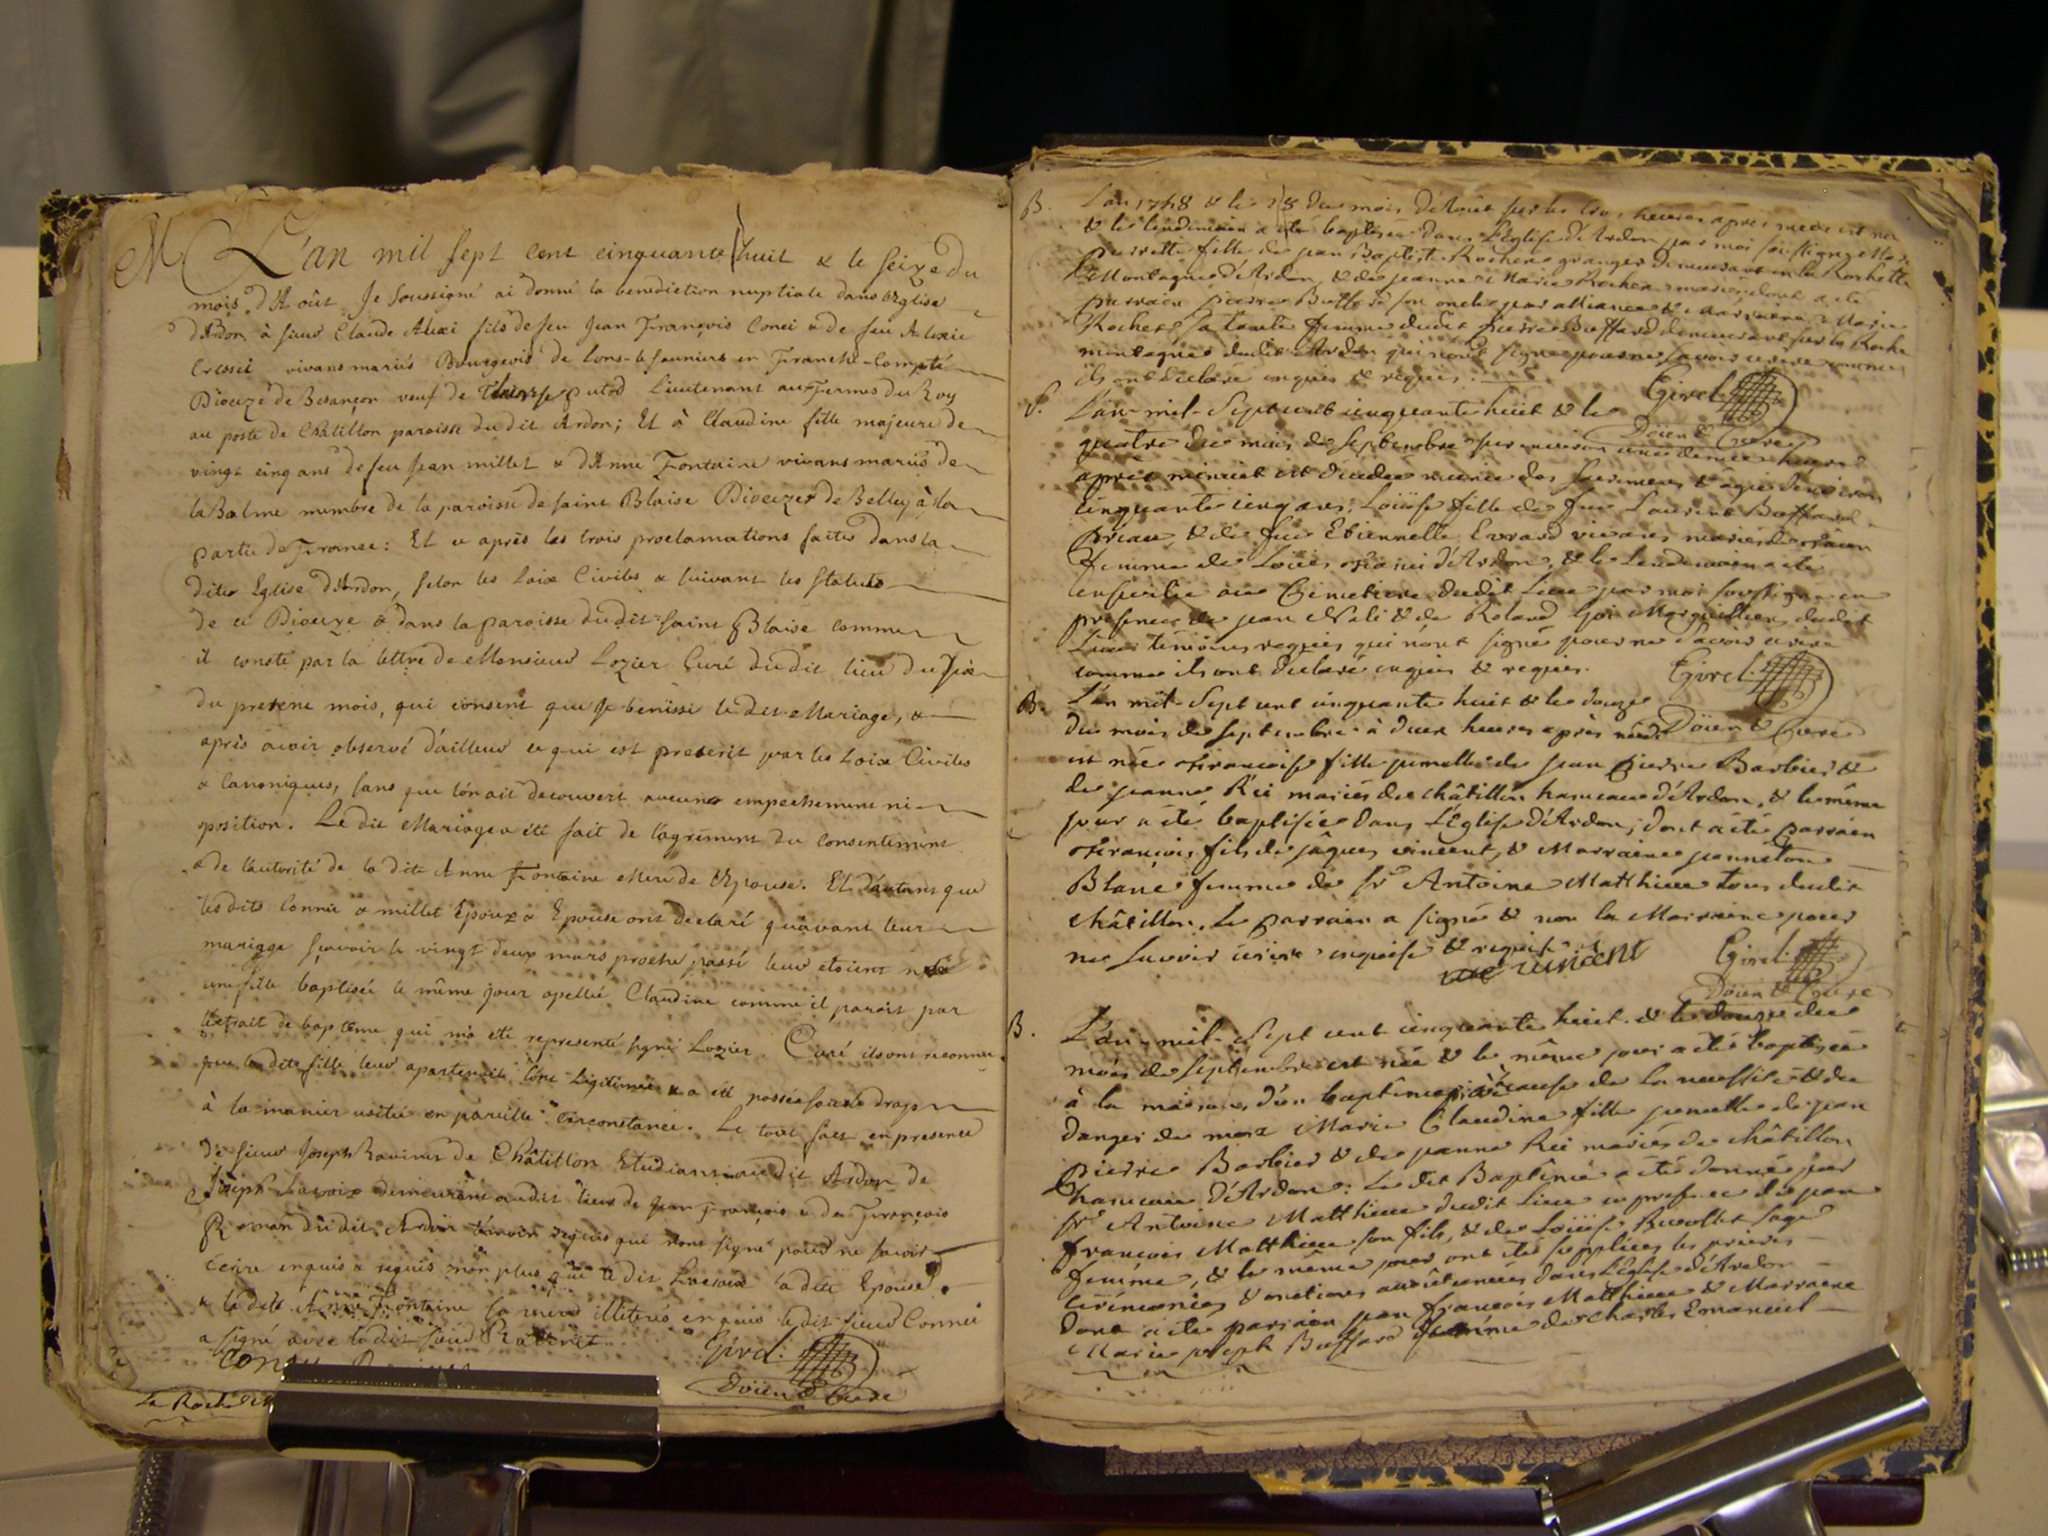 M L'an mil sept cent cinquante huit & le seize du
mois d'Août Je soussigné ai donné la benediction nuptiale dans l'Eglise
d'Ardon à sieur Claude Alexi fils de feu Jean François Conei & de feu
vivans mariés Bourgeois de Lons-le-saunier en Franche-Compté
Dioceze de Besançon veuf de Lieutenant aux Fermes du Roy
au poste de Châtillon paroisse dudit Ardon; Et à Claudine fille majeure de
vingt cinq ans de feu Jean millet & d'Anne Fontaine vivans mariés de
la Balme membre de la paroisse de saint Blaise Diocezes de Belley à la
partie de France: Et ce après les trois proclamations faites dans la
dite Eglise d'Ardon, selon les Loix Civiles & suivant les statuts
de ce Dioceze & dans la paroisse dudit saint Blaise comme
il conste par la lettre de Monsieur Lozier Curé dudit lieu du six
du present mois, qui consent que Je benisse le dit Mariage, &
après avoir observé d'ailleurs ce qui est prescrit par les Loix Civiles
& Canoniques, sans que l'on ait decouvert aucune empechement ni
oposition. Le dit Mariage a été fait de l'agrément du consentement
& de l'autorité de la dite Anne Fontaine Mere de l'Epouse. Et d'autant que
les dits Connei & millet Epoux & Epouse ont declaré qu'avant leur
mariage sçavoir le vingt deux mars proche passé leur etoient née
une fille baptisée le même jour apellée Claudine comme il parois par
l'extrait de baptême qui m'a eté representé signé Lozier Curé ils ont reconnu
que la dite fille leur apartenoit être Legitime & a été passée sous le drap
à la manier usitée en pareille circonstance. Le tout fait en presence
de sieur Joseph Ravinet de Châtillon Etudians audit Ardon de
Joseph Lavoix demeurant audit lieu de Jean François & de François
Roman dudit Ardon témoin requis qui n'ont signé pour ne savoir
écrire enquis & requis non plus que le dit la dite Epouse
& la dite Anne Fontaine sa mere illiterés enquis le dit sieur Connei
a signé avec le dit sieur Ravinet
Girel
Doïen & Curé
B. L'an 1758 & le 18 du mois d'Août sur les trois heures après midi est née
& le lendemain a été baptisée dans l'Eglise d'Ardon par moi soussigné Marie
Pierrette fille de jean Baptiste Rochex granger demeurant en la Rochette
Montagne d'Ardon, & de jeanne Marie Rochex mariés, dont a été
parrain pierre Buffard son oncle par alliance & marraine Marie
Rochex sa tante femme dudit pierre Buffard demeurant sur la Roche
montagne dudit Ardon qui n'ont signé pour ne savoir ecrire comme
ils ont declaré enquis & requis.
Girel
Doïen & Curé
S. L'an mil Sept cent cinquante huit & le
quatre du mois de septembre sur environ une demie heure
après minuit est decedée munie des sacremens & agée d'environ
cinquante cinq ans, Loüise fille de feu Laurent Buffard
& de feue Etiennette Evrard vivans mariés
femme de Loüis d'Ardon, & le lendemain a été
ensevelie au Cimetiere dudit Lieu par moi soussigné en
presence de jean & de Roland Marguillier dudit
Lieu témoins requis qui n'ont signé pour ne savoir ecrire
comme ils ont declaré enquis & requis.
Girel
Doïen & Curé
B. L'an mil Sept cent cinquante huit & le douze
du mois de septembre à deux heures après midi
est née Françoise fille jumelle de jean Pierre Barbier &
de jeanne Rei mariés de châtillon hameau d'Ardon, & le même
jour a été baptisée dans L'Eglise d'Ardon, dont a été parrain
François fils de jâques vincent, & Marraine jeanneton
Blanc femme de Sr Antoine Matthieu tous dudit
châtillon, Le parrain a signé & non la Marraine pour
ne sçavoir ecrire enquise & requise
vincent
Girel
Doïen & Curé
B. L'an mil Sept cent cinquante huit & le douze du
mois de septembre est née & le même jour a été baptisée
à la maison, d'un baptême à cause de la necessité & du
danger de mort Marie Claudine fille jumelle de jean
Pierre Barbier & de jeanne Rei mariés de châtillon
hameau d'Ardon: Le dit Baptême a été donné par
Sr Antoine Matthieu dudit Lieu en presence de jean
François Matthieu son fils, & de Loüise Ruollet sage
femme, & le même jour ont été supplées les prieres
cérémonies & onctions dans l'Eglise d'Ardon
dont a été parrain jean François Matthieu & Marraine
Marie joseph Buffard femme de Charles Emanuel